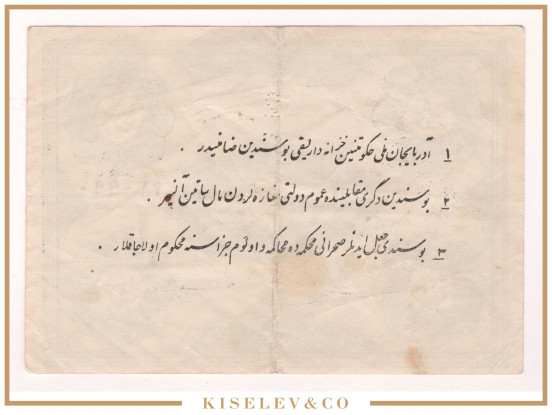 ۱ آذربایجان ملی حکومتینین خزانه داریقی بو سندین ضامنیدر .
۲ بو سندین دگری مقابلینده عموم دولتی مغازه لردن مال ساتین آلنیر .
۳ بو سندی جعل ایدنلر صحرائی محکمه ده محاکمه و اولوم جزاسنه محکوم اولاجاقلار .
KISELEV&CO